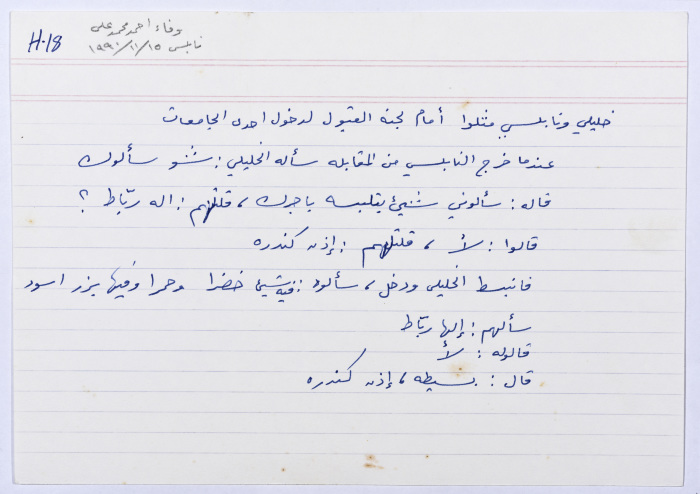 H.18
وفاء احمد محمد علي
نابلس ١٩٩٠/١١/١٥
خليلي ونابلسي مثلوا أمام لجنة القبول لدخول احدى الجامعات
عندما خرج النابلسي من المقابله سأله الخليلي : شنو سألوك
قاله : سألوني شيئ بتلبسه باجرك ، قلتلهم : اله ربّاط ؟
قالوا : لأ ، قلتلهم : إذن كندره
فانبسط الخليلي ودخل ، سألوه : فيه شيئ خضرا وحمرا وفيها بزر اسود
سألهم : إلها ربّاط
قالوله : لأ
قال : بسيطه ، إذن كندره